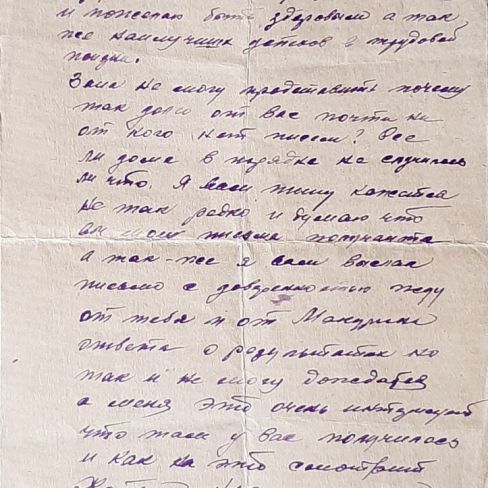 и пожелаю быть здоровыми а так
же наилучших успехов в трудовой
жизни.
не могу представить почему
так долго от вас почти ни
от кого нет писем? Все
ли дома в порядке не случилось
ли что. Я вам пишу кажется
не так редко и думаю что
мои письма получаете
а так-же я вам выслал
письмо с доверенностью жду
от тебя и от
ответа о результатах но
так и не могу дождатся
а меня это очень интересует
что там у вас получилось
и как на это смотрит